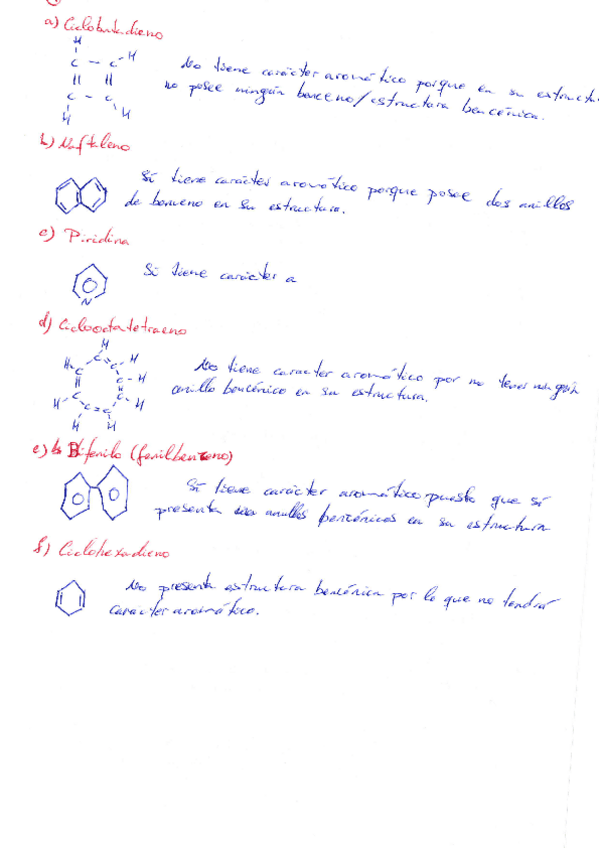 a) Ciclobutadieno
H
C - C H
No tiene carácter aromático porque en su estructu
C - C
no posee ningún benceno/estructura bencénica.
H H
b) Naftaleno
Sí tiene carácter aromático porque posee dos anillos
de benceno en su estructura.
c) Piridina
Sí tiene carácter a
N
d) Ciclooctatetraeno
No tiene caracter aromático por no tener ningún
anillo bencénico en su estructura.
e) Bifenilo (fenilbenceno)
Sí tiene carácter aromático puesto que sí
presenta anillos bencénicos en su estructura
f) Ciclohexadieno
No presenta estructura bencénica por lo que no tendrá
caracter aromático.